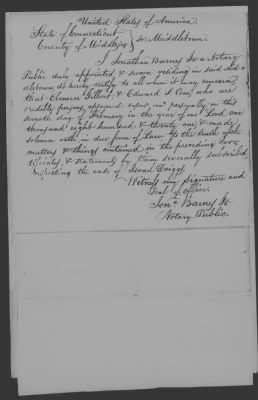 United States of America
State of Connecticut
County of Middlesex } ss Middletown.
I Jonathan Barnes Jr a Notary
Public duly appointed & sworn residing in said Mid-
dletown do hereby certify to all whom it may concern
that Ebenezer Gilbert & Edward S. Cone, who are
credible persons appeared before me personally on this
seventh day of February in the year of our Lord one
thousand eight hundred & twenty one & made
solemn oath in due form of Law to the truth of the
matters & things contained in the preceding cer-
tificates, & statements by them severally subscribed,
respecting the case of Israel Driggs.
Witness my signature and
Seal of office
Jonth Barnes Jr
Notary Public